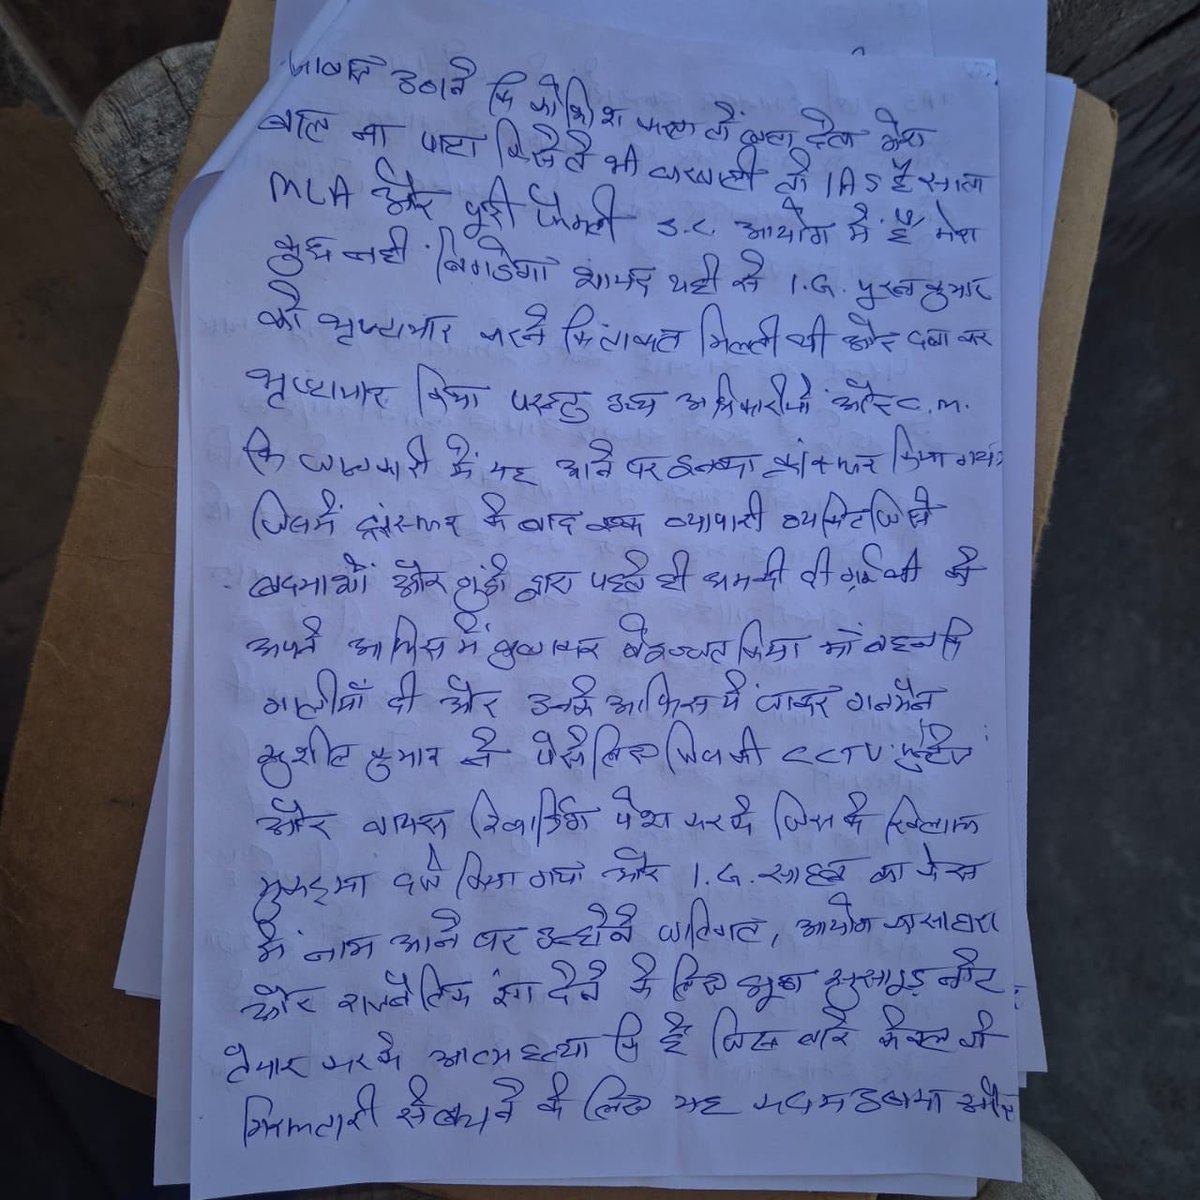 आवाज उठाने कि कोशिश करता तो कहा देता मेरा
बाल ना पाटा किसैले भी घरवाली तो IAS है साला
MLA और पूरी फैमली S.C. आयोग में है मेरा
कुछ नही बिगडेगा शायद यही से I.G. पुरन कुमार
को भृष्टाचार करने कि ताकत मिलती थी और दबा कर
भृष्टाचार किया परन्तु उच्च अधिकारीयों और C.M.
कि जानकारी में यह आने पर इनका ट्रांसफर किया गया
जिसमें ट्रांसफर के बाद एक व्यापारी व्यक्ति जिसे
बदमाशों और गुंडो द्वारा पहले ही धमकी दी गई थी ने
अपने आफिस में बुलाकर बेइज्जत किया माँ बहन कि
गालीयाँ दी और उनके आफिस में जाकर गनमैन
सुशील कुमार ने पैसे लिए जिसकी CCTV फुटेज
और वायस रिकार्डिंग पेश करके जिसके खिलाफ
मुकदमा दर्ज किया गया और I.G. साहब का केस
में नाम आने पर उन्होने जातिगत, आयोग का सहारा
और राजनैतिक रंग देने के लिए झूठा सुसाइड नोट
तैयार करके आत्महत्या कि है जिस बारे केवल जी
गिरफ्तारी से बचने के लिए यह कदम उठाया और